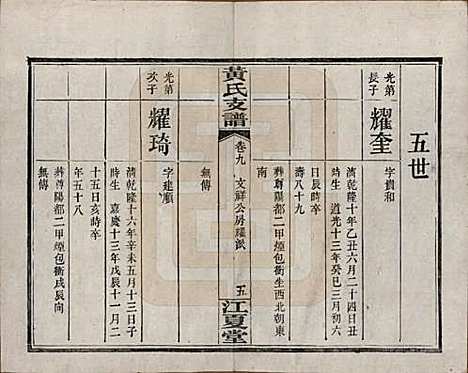 五世
光第
長子
耀奎
字貴和
清乾隆十年乙丑六月二十四日丑
時生 道光十三年癸巳三月初六
日辰時卒
壽八十九
葬尊陽都二甲煙包衝生西北朝東
南
黃氏支譜
卷九
文祥公房耀派
五
江夏堂
光第
次子
耀琦
字建順
清乾隆十六年辛未五月十三日子
時生 嘉慶十三年戊辰十一月二
十五日亥時卒
年五十八
葬尊陽都二甲煙包衝戌辰向
無傳
無傳